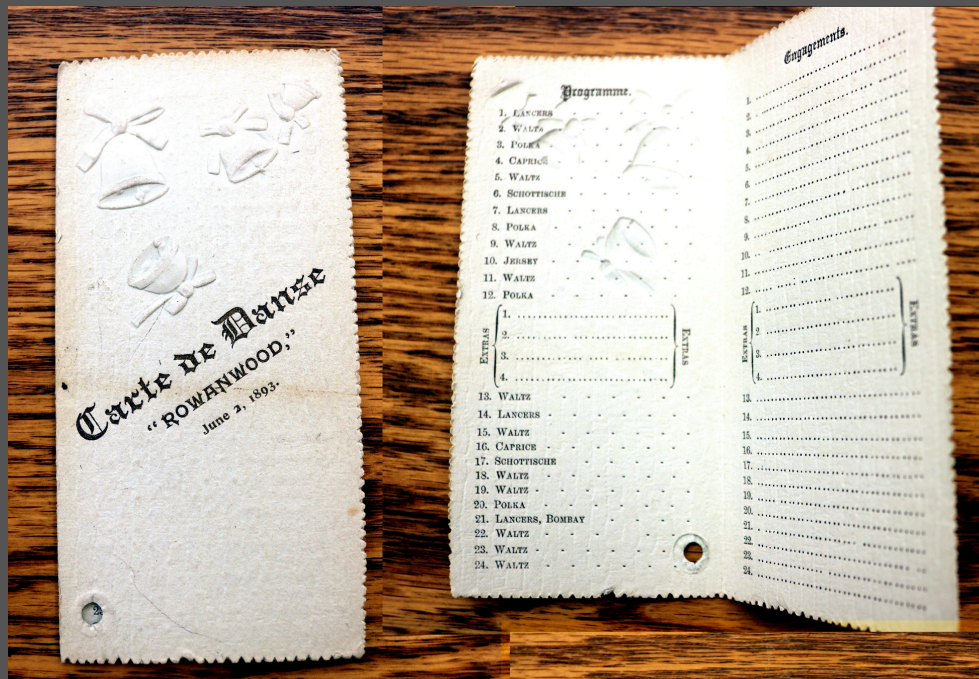 Carte de Danse
"ROWANWOOD,"
June 2, 1893.
Programme.
1. LANCERS
2. WALTZ
3. POLKA
4. CAPRICE
5. WALTZ
6. SCHOTTISCHE
7. LANCERS
8. POLKA
9. WALTZ
10. JERSEY
11. WALTZ
12. POLKA
EXTRAS
1.
2.
3.
4.
EXTRAS
13. WALTZ
14. LANCERS
15. WALTZ
16. CAPRICE
17. SCHOTTISCHE
18. WALTZ
19. WALTZ
20. POLKA
21. LANCERS, BOMBAY
22. WALTZ
23. WALTZ
24. WALTZ
Engagements.
1.
2.
3.
4.
5.
6.
7.
8.
9.
10.
11.
12.
EXTRAS
1.
2.
3.
4.
EXTRAS
13.
14.
15.
16.
17.
18.
19.
20.
21.
22.
23.
24.